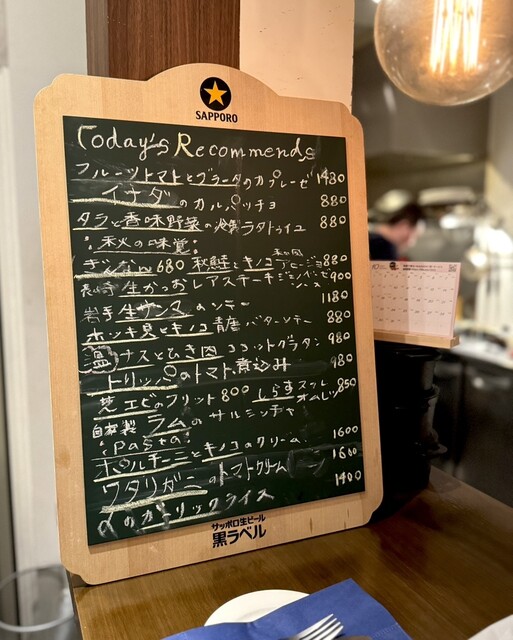 SAPPORO
Today's Recommends
フルーツトマトとブラータのカプレーゼ 1480
イナダのカルパッチョ 880
タラと香味野菜の冷製ラタトゥイユ 880
:秋の味覚:
ぎんなん 680 秋鮭とキノコ 880
生かつおレアステーキ 900
岩手生サンマのソテー 1180
ホッキ貝とキノコ青唐バターソテー 880
温 ナスとひき肉ココットグラタン 980
トリッパのトマト煮込み 980
芝エビのフリット 800 しらすスフレオムレツ 850
自家製ラムのサルシッチャ
:Pasta:
ポルチーニとキノコのクリーム 1600
ワタリガニのトマトクリーム 1600
のガーリックライス 1400
サッポロ生ビール
黒ラベル